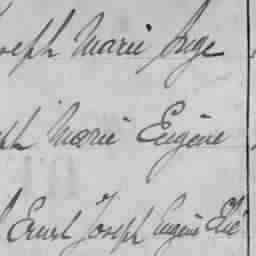 Joseph Marie Ange
Joseph Marie Eugène
Ernest Joseph Eugène Elie